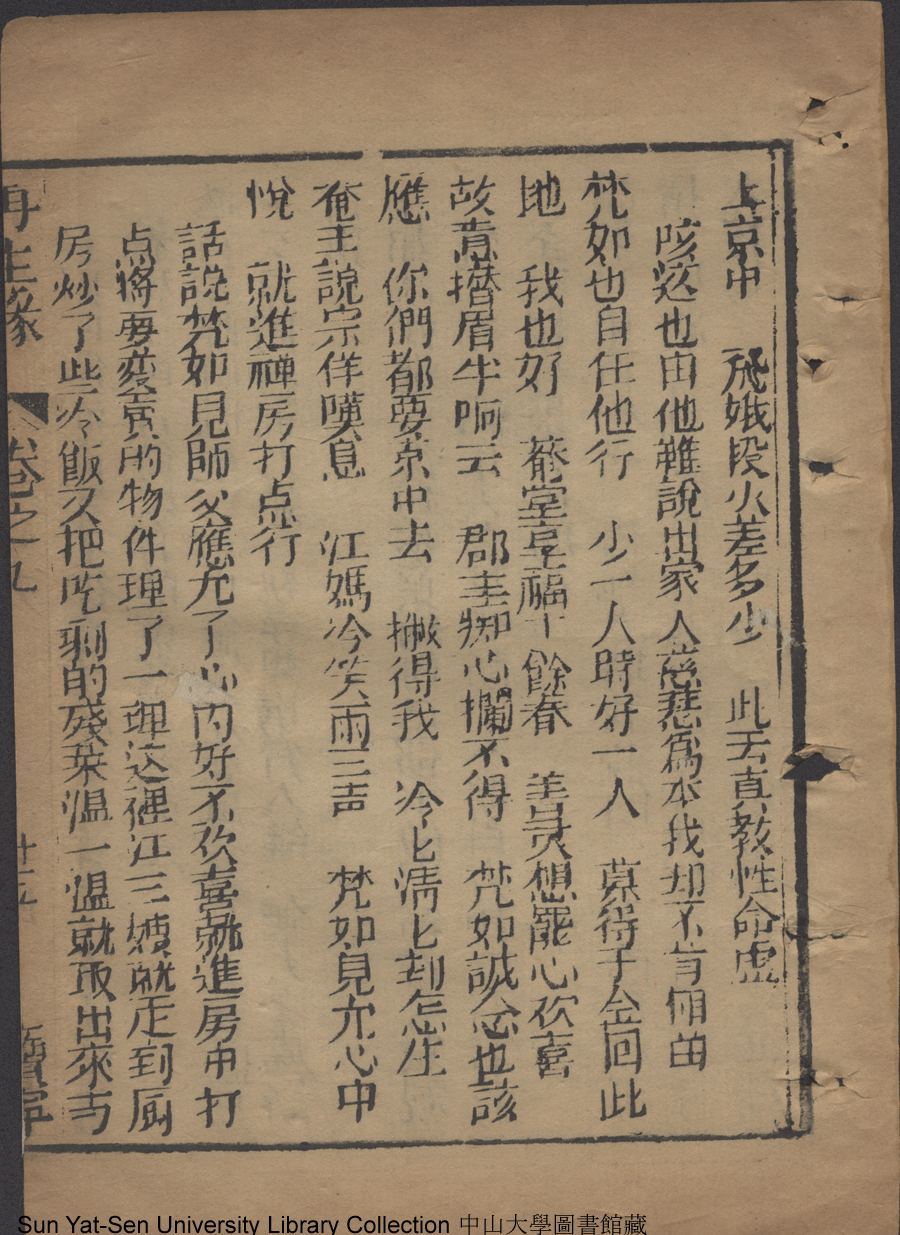 上京中　飛娥段火差多少　此去直教性命虛
咳这也由他雖說出家人慈悲為本我却不肯傾
梵如也自任他行　少一人時好一人　莫得子全回此
地　我也好　菴堂享福十餘春　善灵想罷心欢喜
故意揩眉半晌云　郡主痴心攔不得　梵如誠念也該
應　你們都要京中去　撇得我　冷匕清匕刧怎生
奄主說完佯嘆息　江媽冷笑兩三声　梵如見允心中
悅　就進禪房打点行
話說梵如見師父應允了心內好不欢喜就進房中打
点將要变賣的物件理了一理这裡江三嫂就走到厨
房炒了些冷飯又把吃剩的殘菜温一温就取出來与
再生緣　卷之九　十五　寶寧
Sun Yat-Sen University Library Collection 中山大學圖書館藏